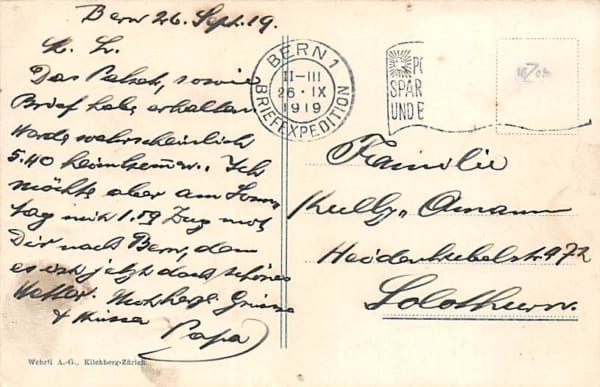 Bern 26. Sept. 19.
M. L.
Das Paket, sowie
Brief habe erhalten
Werde wahrscheinlich
5.40 heimkommen. Ich
möchte aber am Sonn
tag mit 1.59 Zug mit
Dir nach Bern, denn
es ist jetzt doch schönes
Wetter. Herzliche Grüsse
& Küsse
Papa
Wehrli A.-G., Kilchberg-Zürich.
BERN 1
II-III
26·IX
1919
BRIEFEXPEDITION
SPAR
UND
Familie
Kully-Amann
Heidenhubelstr. 972
Solothurn.